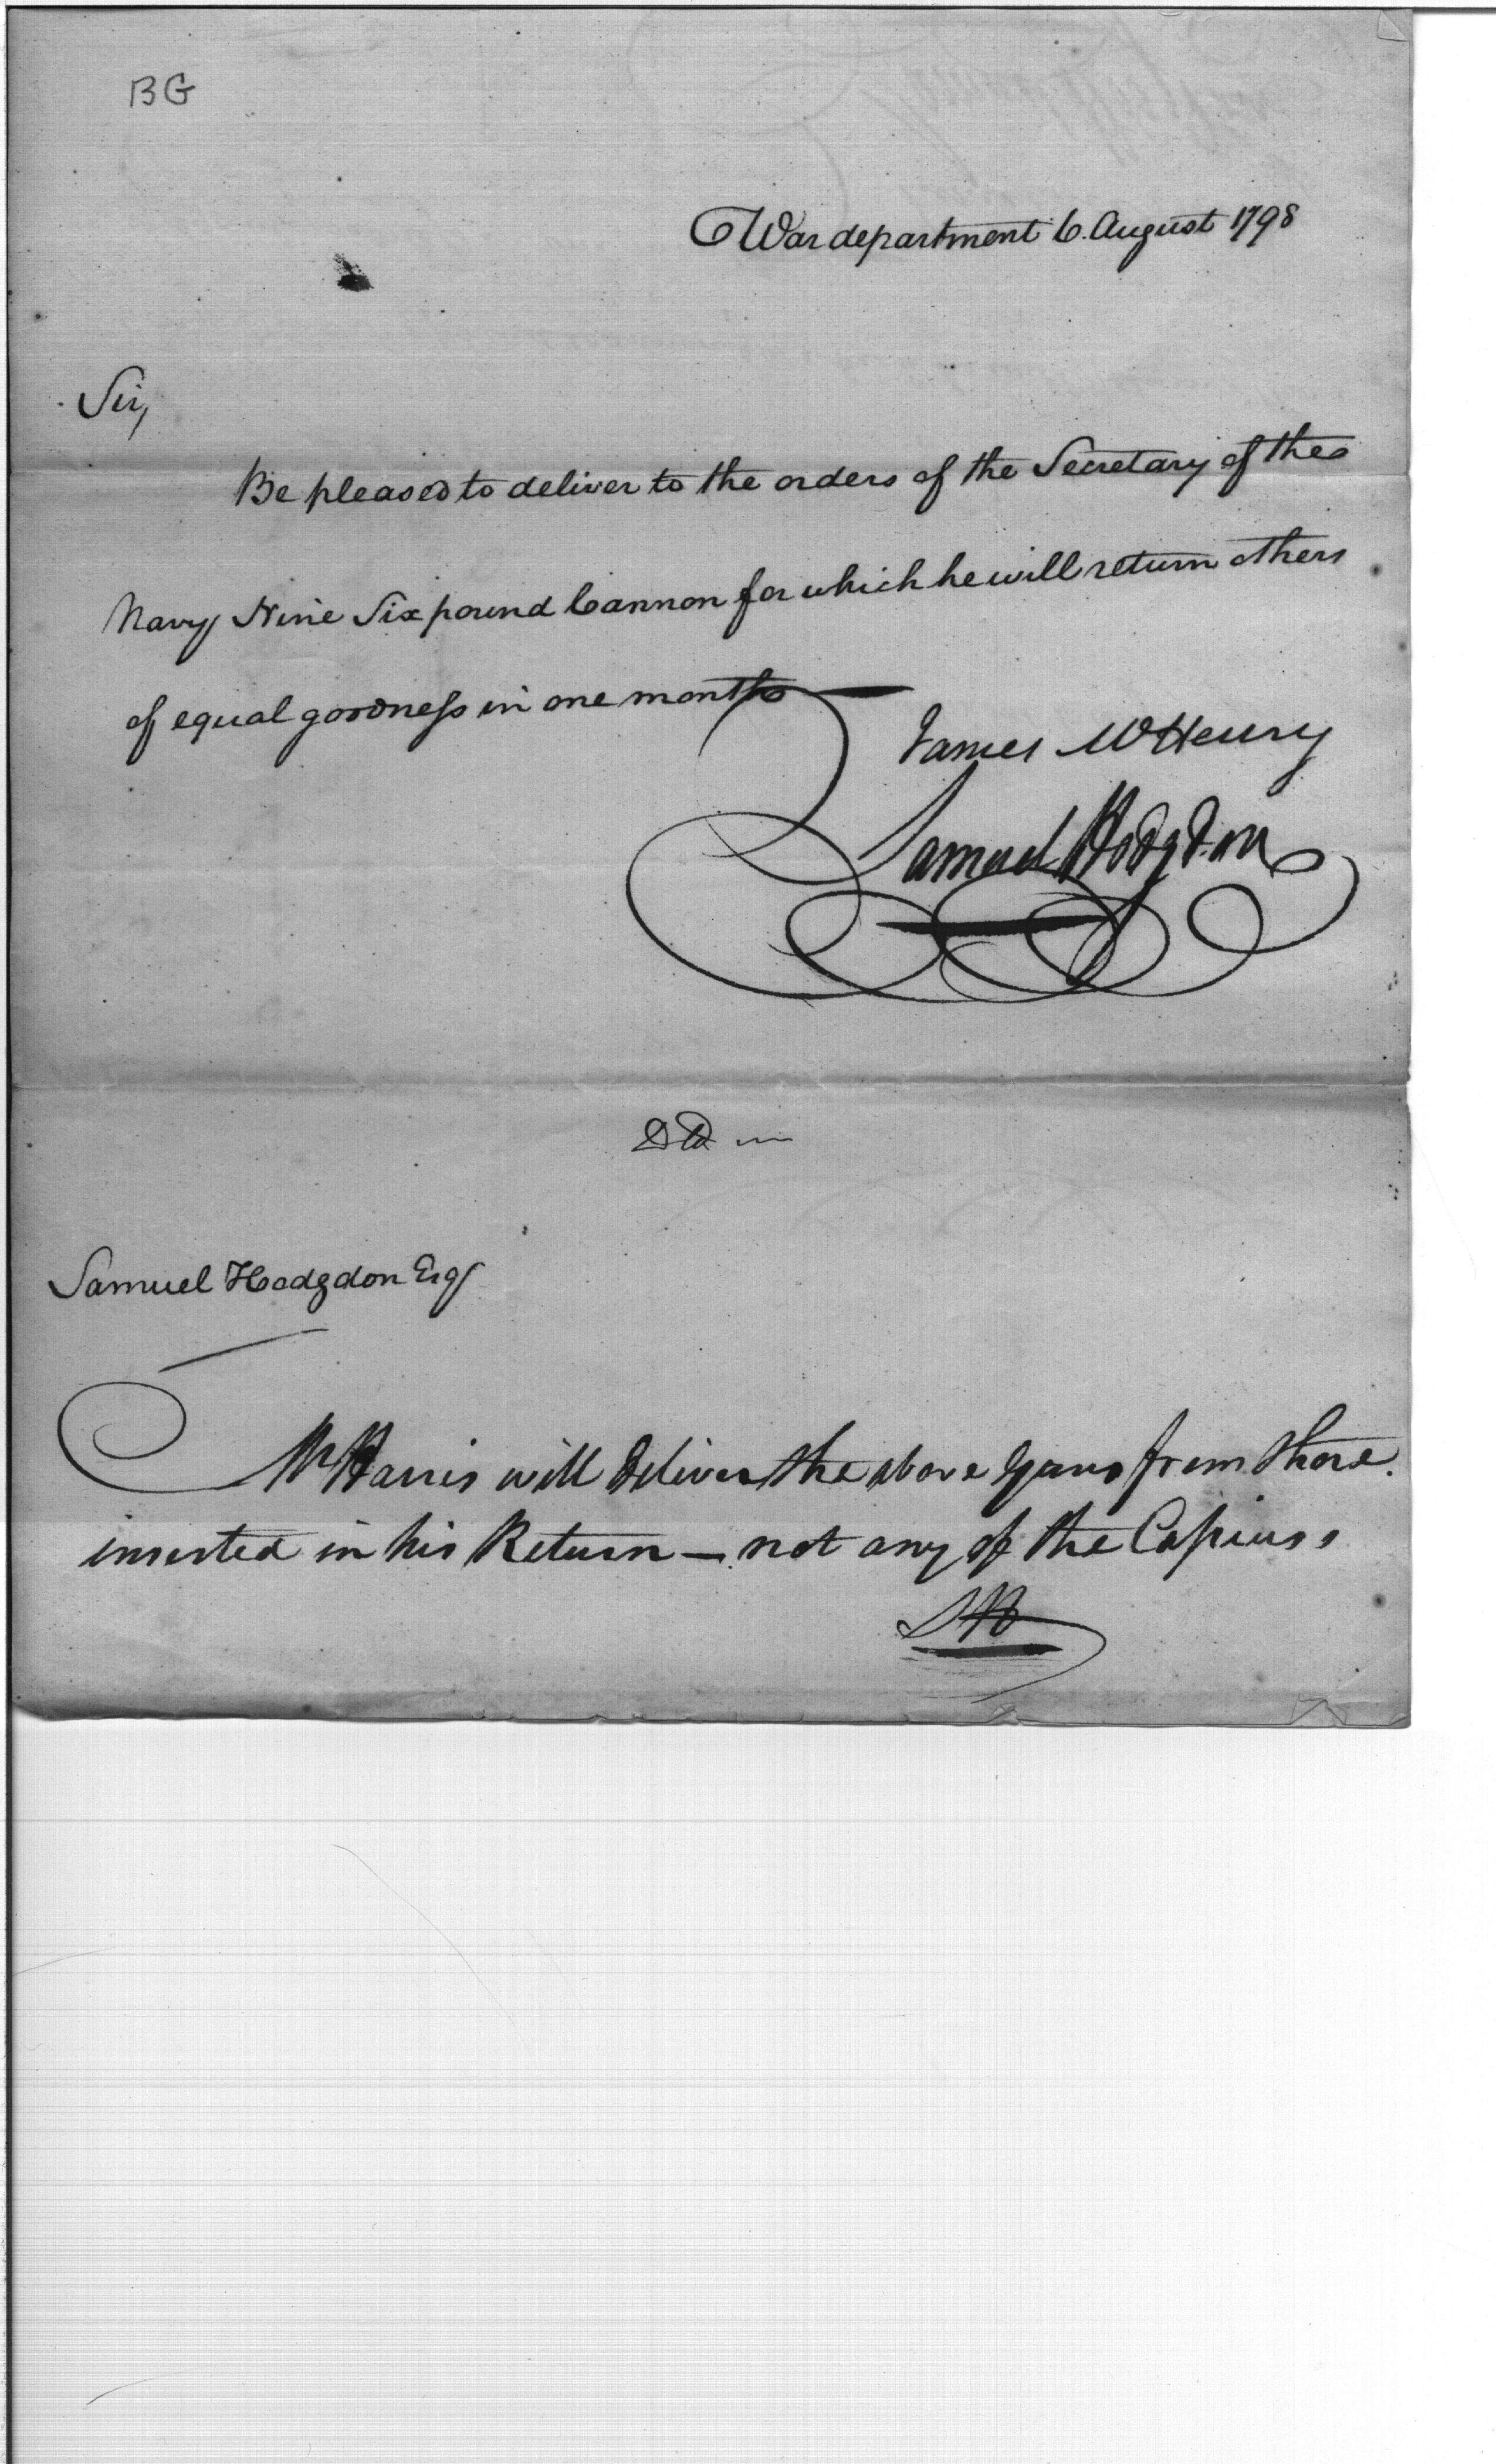 BG
War department 6. August 1798
Sir,
Be pleased to deliver to the orders of the Secretary of the
Navy Nine Six pound Cannon for which he will return others
of equal goodness in one month
James McHenry
Samuel Hodgdon
Samuel Hodgdon Esqr
Mr Harris will deliver the above Guns from those
inserted in his Return — not any of the
SH